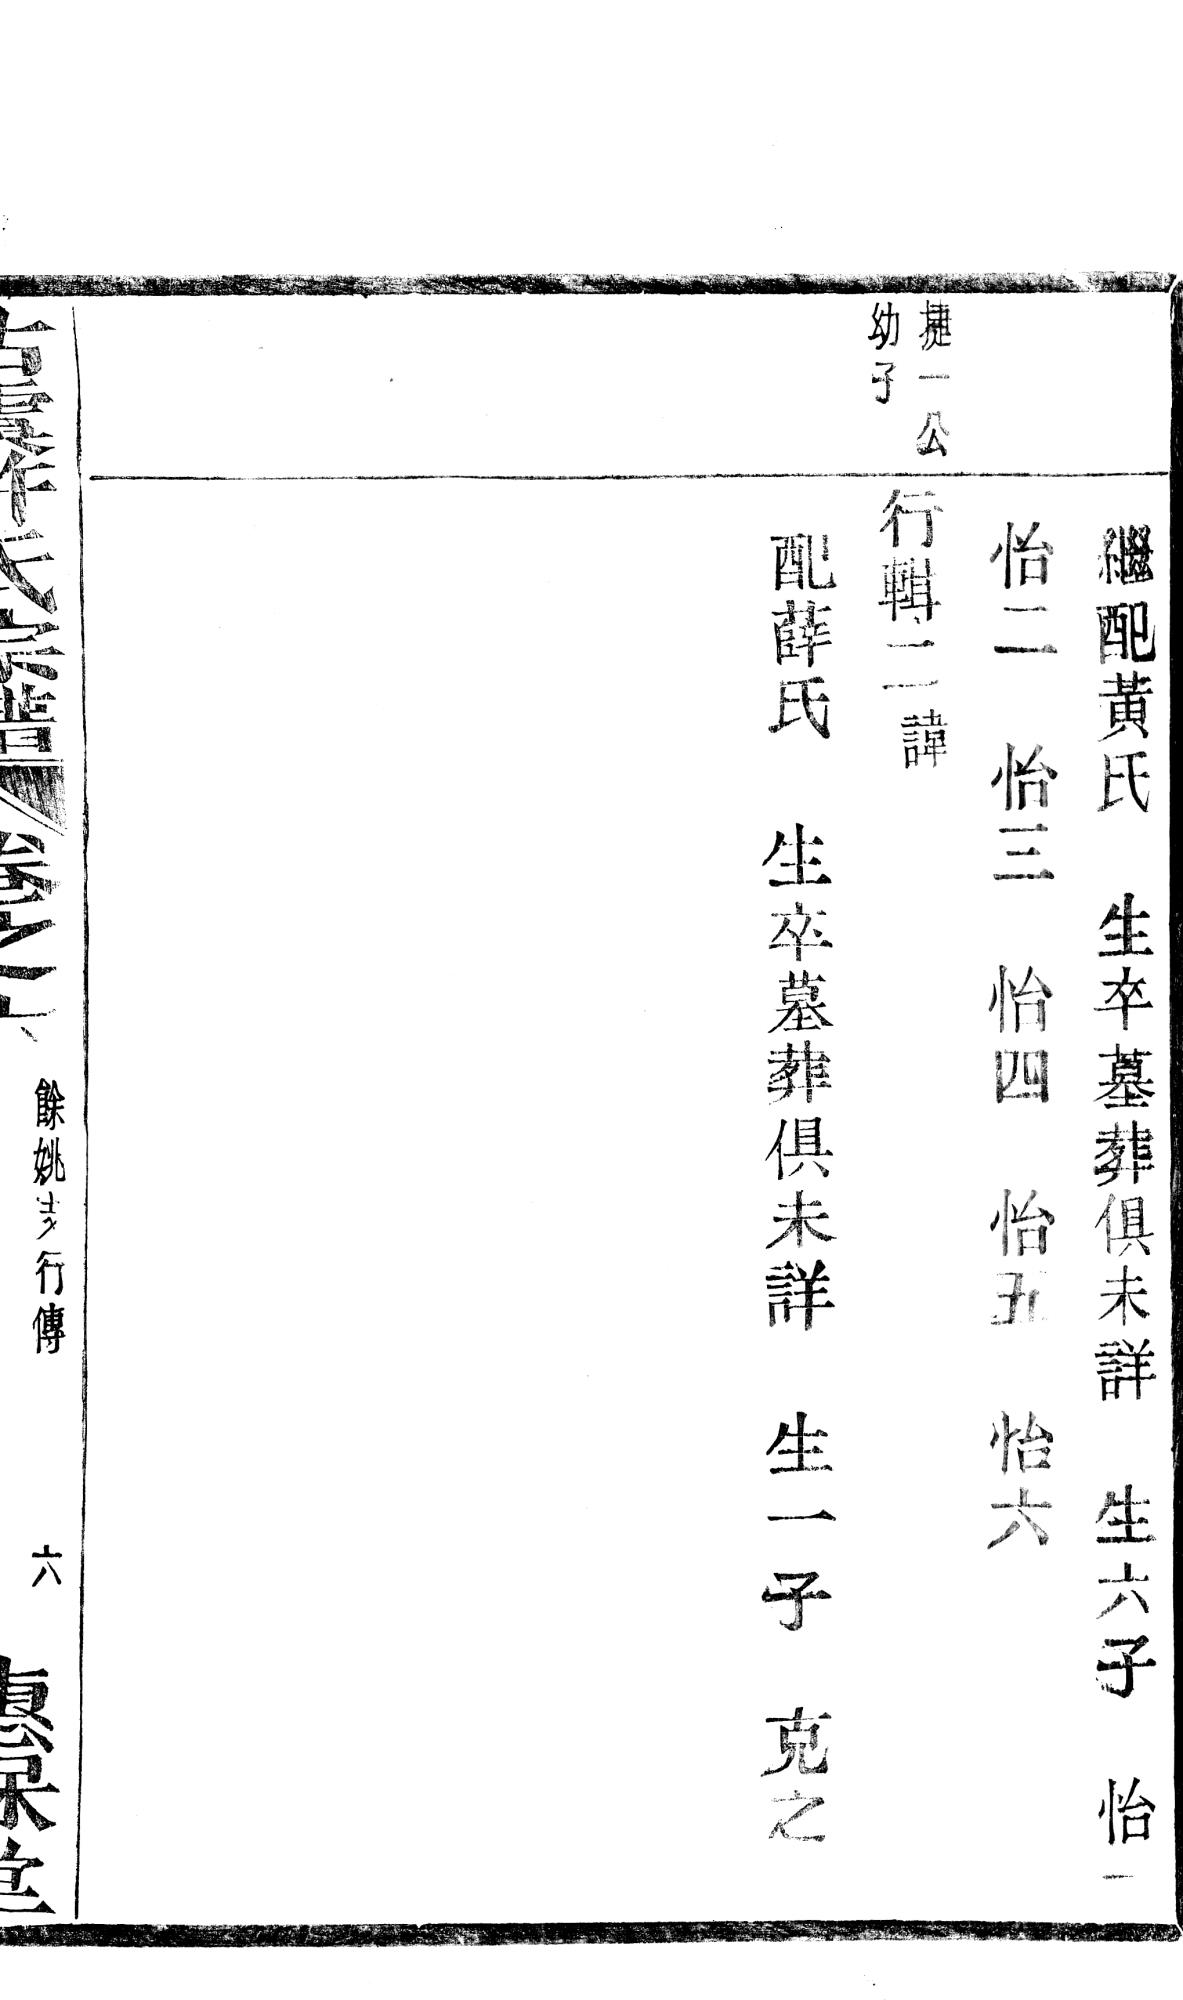 繼配黃氏　生卒墓葬俱未詳　生六子　怡一
怡二　怡三　怡四　怡五　怡六
捷一公
幼子
行輯二諱
配薛氏　生卒墓葬俱未詳　生一子　克之
氏宗譜　卷之六　餘姚　行傳　六